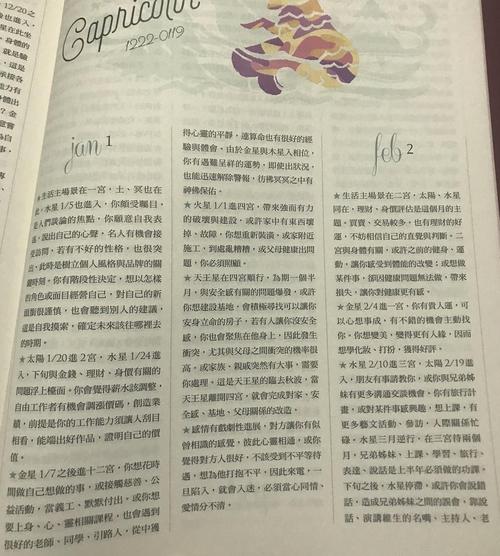 Capricorn
1222-0119
jan 1
★生活主場景在一宮，土、冥也在
此，水星 1/5也進入，你頗受矚目，
是人們談論的焦點，你願意自我表
達，說出自己的心聲，名人有機會接
受訪問，若有不好的性格，也很突
出，此時是樹立個人風格與品牌的關
鍵時刻，你有階段性決定，想以怎樣
的角色或面目經營自己，對自己的新
衝衝很謹慎，也會聽到別人的建議，
這是自我摸索，確定未來該往哪裡去
的時期。
★太陽 1/20進 2宮，水星 1/24進
入，下旬與金錢、理財、身價有關的
問題浮上檯面。你會覺得薪水該調整，
自由工作者有機會調漲價碼，創造業
績，前提是你的工作能力須讓人刮目
相看，能端出好作品，證明自己的價
值。
★金星 1/7之後進十二宮，你想花時
間做自己想做的事，或接觸慈善、公
益活動，當義工、默默付出，或你想
要上身、心、靈相關課程，也會遇到
很好的老師、同學、引路人，從中獲
得心靈的平靜，連算命也有很好的經
驗與體會。由於金星與木星入相位，
你有遇難呈祥的運勢，即使出狀況，
也能迅速解除警報，彷彿冥冥之中有
神佛保佑。
★火星 1/1進四宮，帶來強而有力
的破壞與建設，或許家中有東西壞
掉、故障，你想重新裝潢，或家附近
施工，到處亂糟糟，或父母健康出問
題，你必須照顧。
★天王星在四宮順行，為期一個半
月，與安全感有關的問題爆發，或許
你想建設基地，會積極尋找可以讓你
安身立命的房子，若有人讓你沒安全
感，你也會聚焦在他身上，因此發生
衝突，尤其與父母之間衝突的機率很
高。或家族、親戚突然有大事，需要
你處理。這是天王星的臨去秋波，當
天王星離開四宮，就會完成對家、安
全感、基地、父母關係的改造。
★感情有戲劇性進展，對方讓你有似
曾相識的感覺，彼此心靈相通，或你
覺得對方人很好，不該受到不平等待
遇，想為他打抱不平，因此來電，一
旦陷入，就會入迷，必須當心同情、
愛情分不清。
feb 2
★生活主場景在二宮，太陽、水星
同在，理財、身價評估是這個月的主
題。買賣、交易較多，也有理財的好
運，不妨相信自己的直覺與判斷。二
宮與身體有關，或許之前的健身、運
動，讓你感受到體能的改變；或想做
某件事，卻因健康問題無法做，帶來
損失，讓你對健康更有感。
★金星 2/4進一宮，你有貴人運，可
以心想事成，有不錯的機會主動找
你。你想變美、變得更有人緣，因而
想學化妝、打扮，獲得好評。
★水星 2/10進三宮，太陽 2/19進
入，朋友有事請教你，或你與兄弟姊
妹有更多溝通交談機會，你有旅行計
畫，或對某件事感興趣，想上課，有
更多藝文活動、參訪，人際關係忙
碌。水星三月逆行，在三宮待兩個
月，兄弟姊妹、上課、學習、旅行、
表達、說話是上半年必須做的功課。
下旬之後，水星停滯，或許你會說錯
話，造成兄弟姊妹之間的誤會，靠說
話、演講維生的名嘴、主持人、老
12/20之